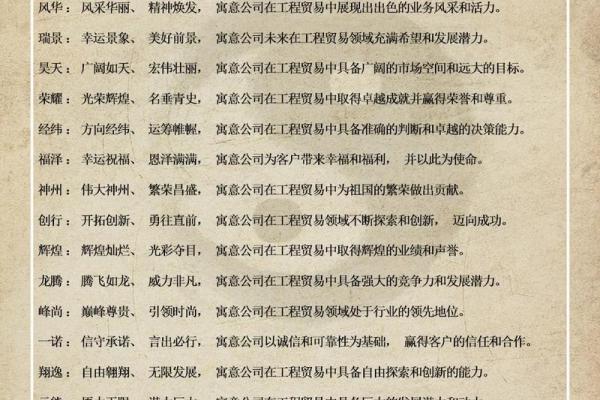 风华： 风采华丽、 精神焕发， 寓意公司在工程贸易中展现出出色的业务风采和活力。
瑞景： 幸运景象、 美好前景， 寓意公司未来在工程贸易领域充满希望和发展潜力。
昊天： 广阔如天、 宏伟壮丽， 寓意公司在工程贸易中具备广阔的市场空间和远大的目标。
荣耀： 光荣辉煌、 名垂青史， 寓意公司在工程贸易中取得卓越成就并赢得荣誉和尊重。
经纬： 方向经纬、 运筹帷幄， 寓意公司在工程贸易中具备准确的判断和卓越的决策能力。
福泽： 幸运祝福、 恩泽满满， 寓意公司为客户带来幸福和福利， 并以此为使命。
神州： 伟大神州、 繁荣昌盛， 寓意公司在工程贸易中为祖国的繁荣做出贡献。
创行： 开拓创新、 勇往直前， 寓意公司在工程贸易领域不断探索和创新， 迈向成功。
辉煌： 辉煌灿烂、 光彩夺目， 寓意公司在工程贸易中取得辉煌的业绩和声誉。
龙腾： 腾飞如龙、 威力非凡， 寓意公司在工程贸易中具备强大的竞争力和发展潜力。
峰尚： 巅峰尊贵、 引领时尚， 寓意公司在工程贸易领域处于行业的领先地位。
一诺： 信守承诺、 言出必行， 寓意公司以诚信和可靠性为基础， 赢得客户的信任和合作。
翔逸： 自由翱翔、 无限发展， 寓意公司在工程贸易中具备自由探索和创新的能力。